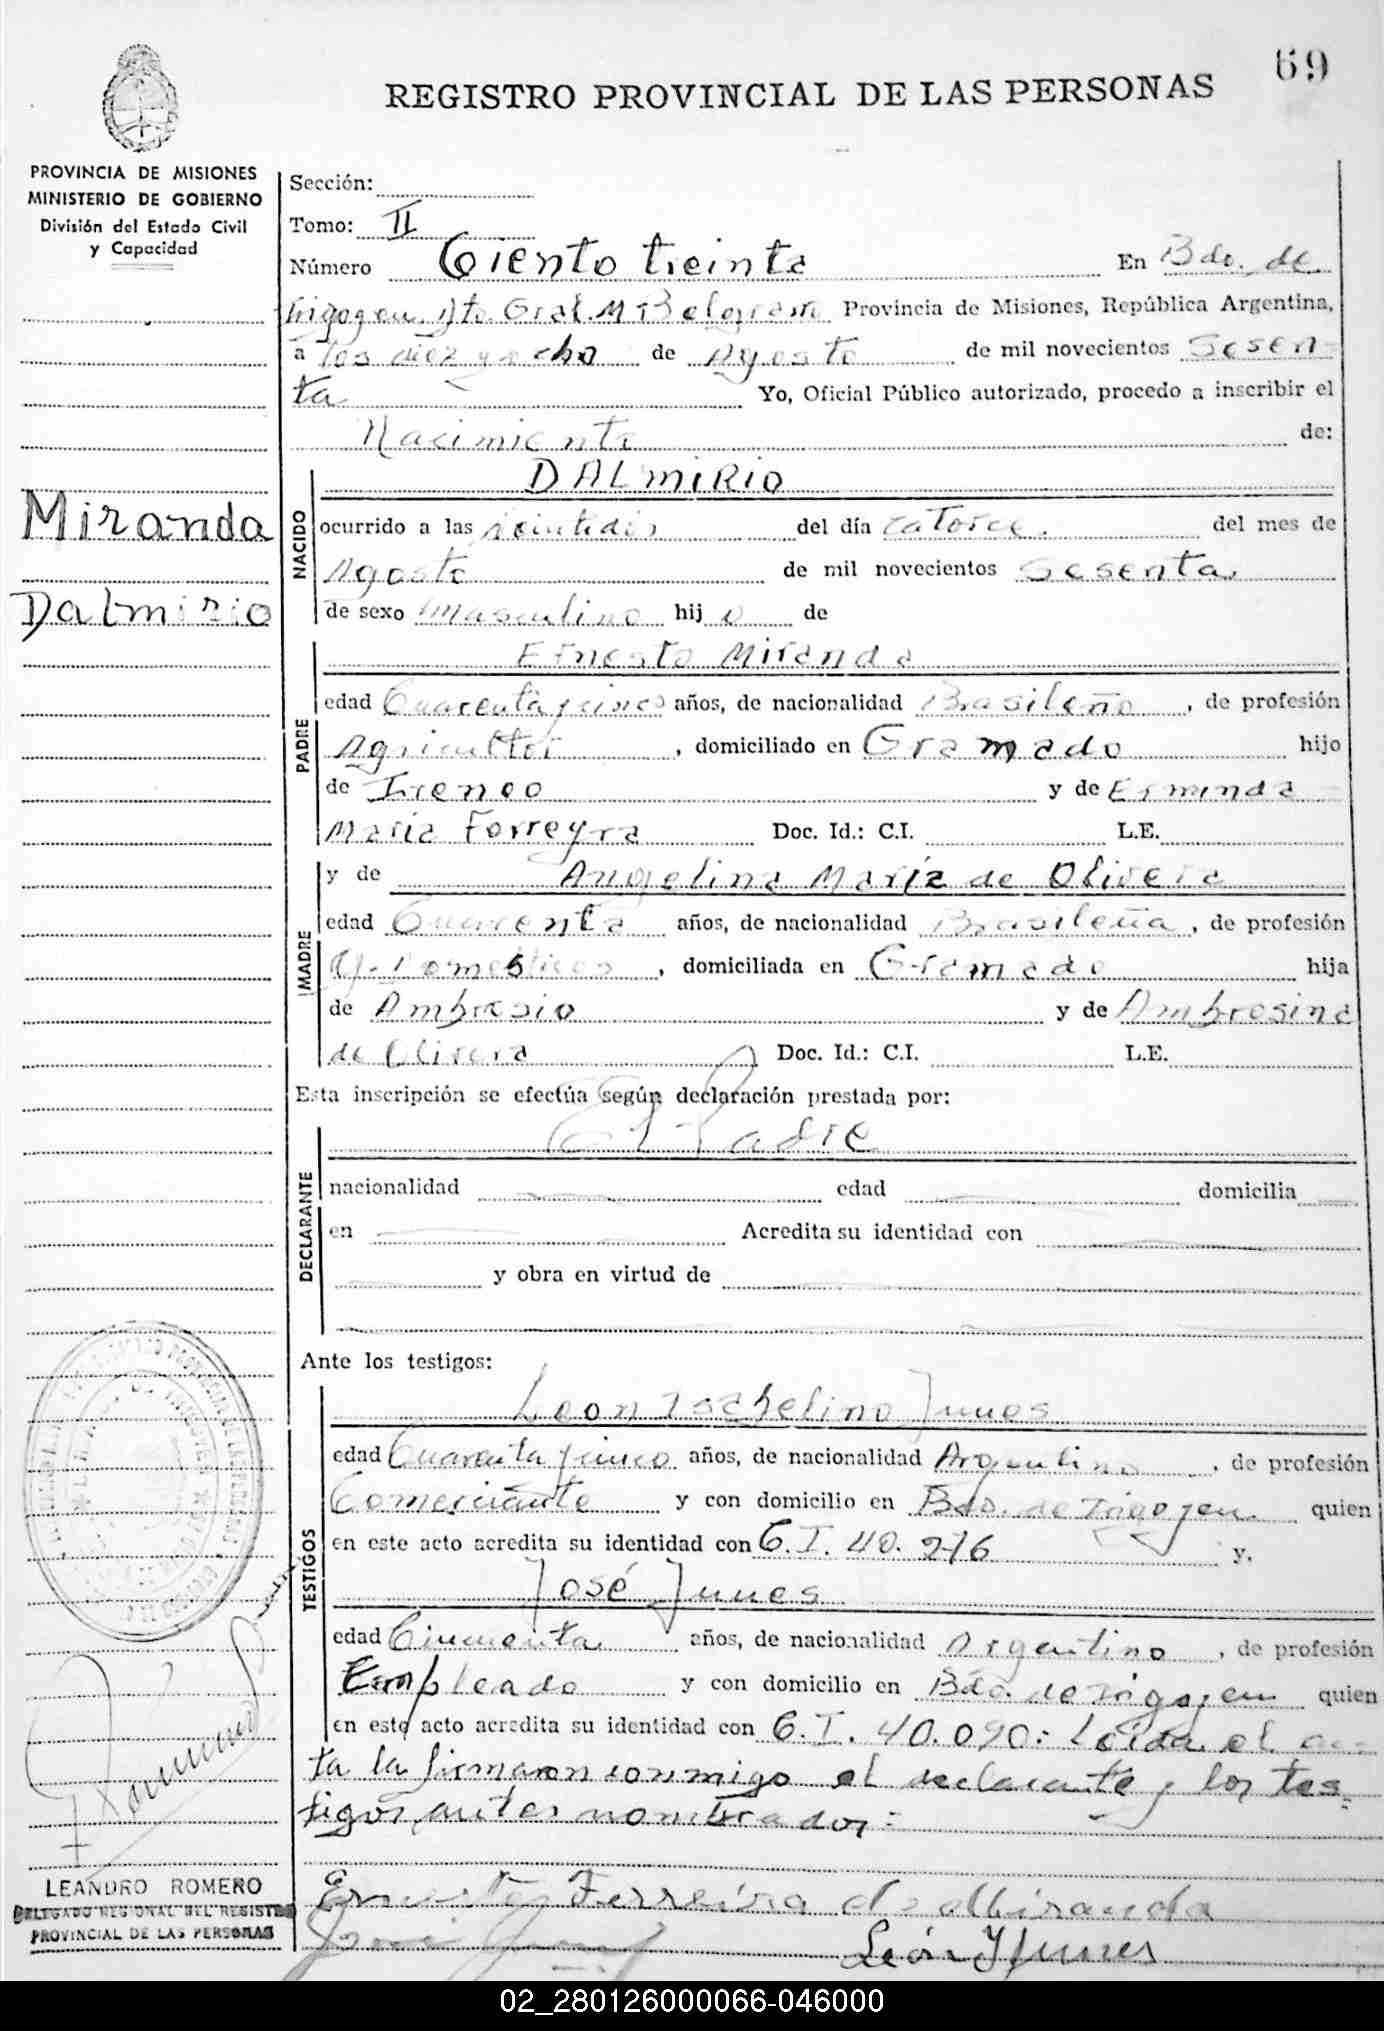 69
REGISTRO PROVINCIAL DE LAS PERSONAS
PROVINCIA DE MISIONES
MINISTERIO DE GOBIERNO
División del Estado Civil
y Capacidad
Sección:
Tomo: II
Número Ciento treinta En Bdo. de
Irigoyen, Dto. Gral. M. Belgrano Provincia de Misiones, República Argentina,
a los diez y ocho de Agosto de mil novecientos Sesen
ta Yo, Oficial Público autorizado, procedo a inscribir el
Nacimiento de:
DALMIRIO
Miranda
Dalmirio
NACIDO
ocurrido a las del día catorce. del mes de
Agosto de mil novecientos Sesenta
de sexo Masculino hijo de
PADRE
Ernesto Miranda
edad Cuarenta y cinco años, de nacionalidad Brasileño, de profesión
Agricultor, domiciliado en Gramado hijo
de Ireneo y de Erminda
Maria Forreyra Doc. Id.: C.I. L.E.
MADRE
y de Angelina María de Olivera
edad Cuarenta años, de nacionalidad Brasileña, de profesión
Q. Domesticos, domiciliada en Gramado hija
de Ambrosio y de Ambrosina
de Olivera Doc. Id.: C.I. L.E.
Esta inscripción se efectúa según declaración prestada por:
DECLARANTE
El Padre
nacionalidad edad domicilia
en Acredita su identidad con
y obra en virtud de
Ante los testigos:
TESTIGOS
Leon Isabelino Junes
edad Cuarenta y cinco años, de nacionalidad Argentino, de profesión
Comerciante y con domicilio en Bdo. de Irigoyen quien
en este acto acredita su identidad con C.I. 40.276 y.
José Junes
edad Cincuenta años, de nacionalidad Argentino, de profesión
Empleado y con domicilio en Bdo. de Irigoyen quien
en este acto acredita su identidad con C.I. 40.090: Leida el ac
ta la firmaron conmigo el declarante y los tes
tigos antes nombrados:
Ernesto Ferreira de Miranda
León Y Junes
LEANDRO ROMERO
DELEGADO REGIONAL DEL REGISTRO
PROVINCIAL DE LAS PERSONAS
02_280126000066-046000